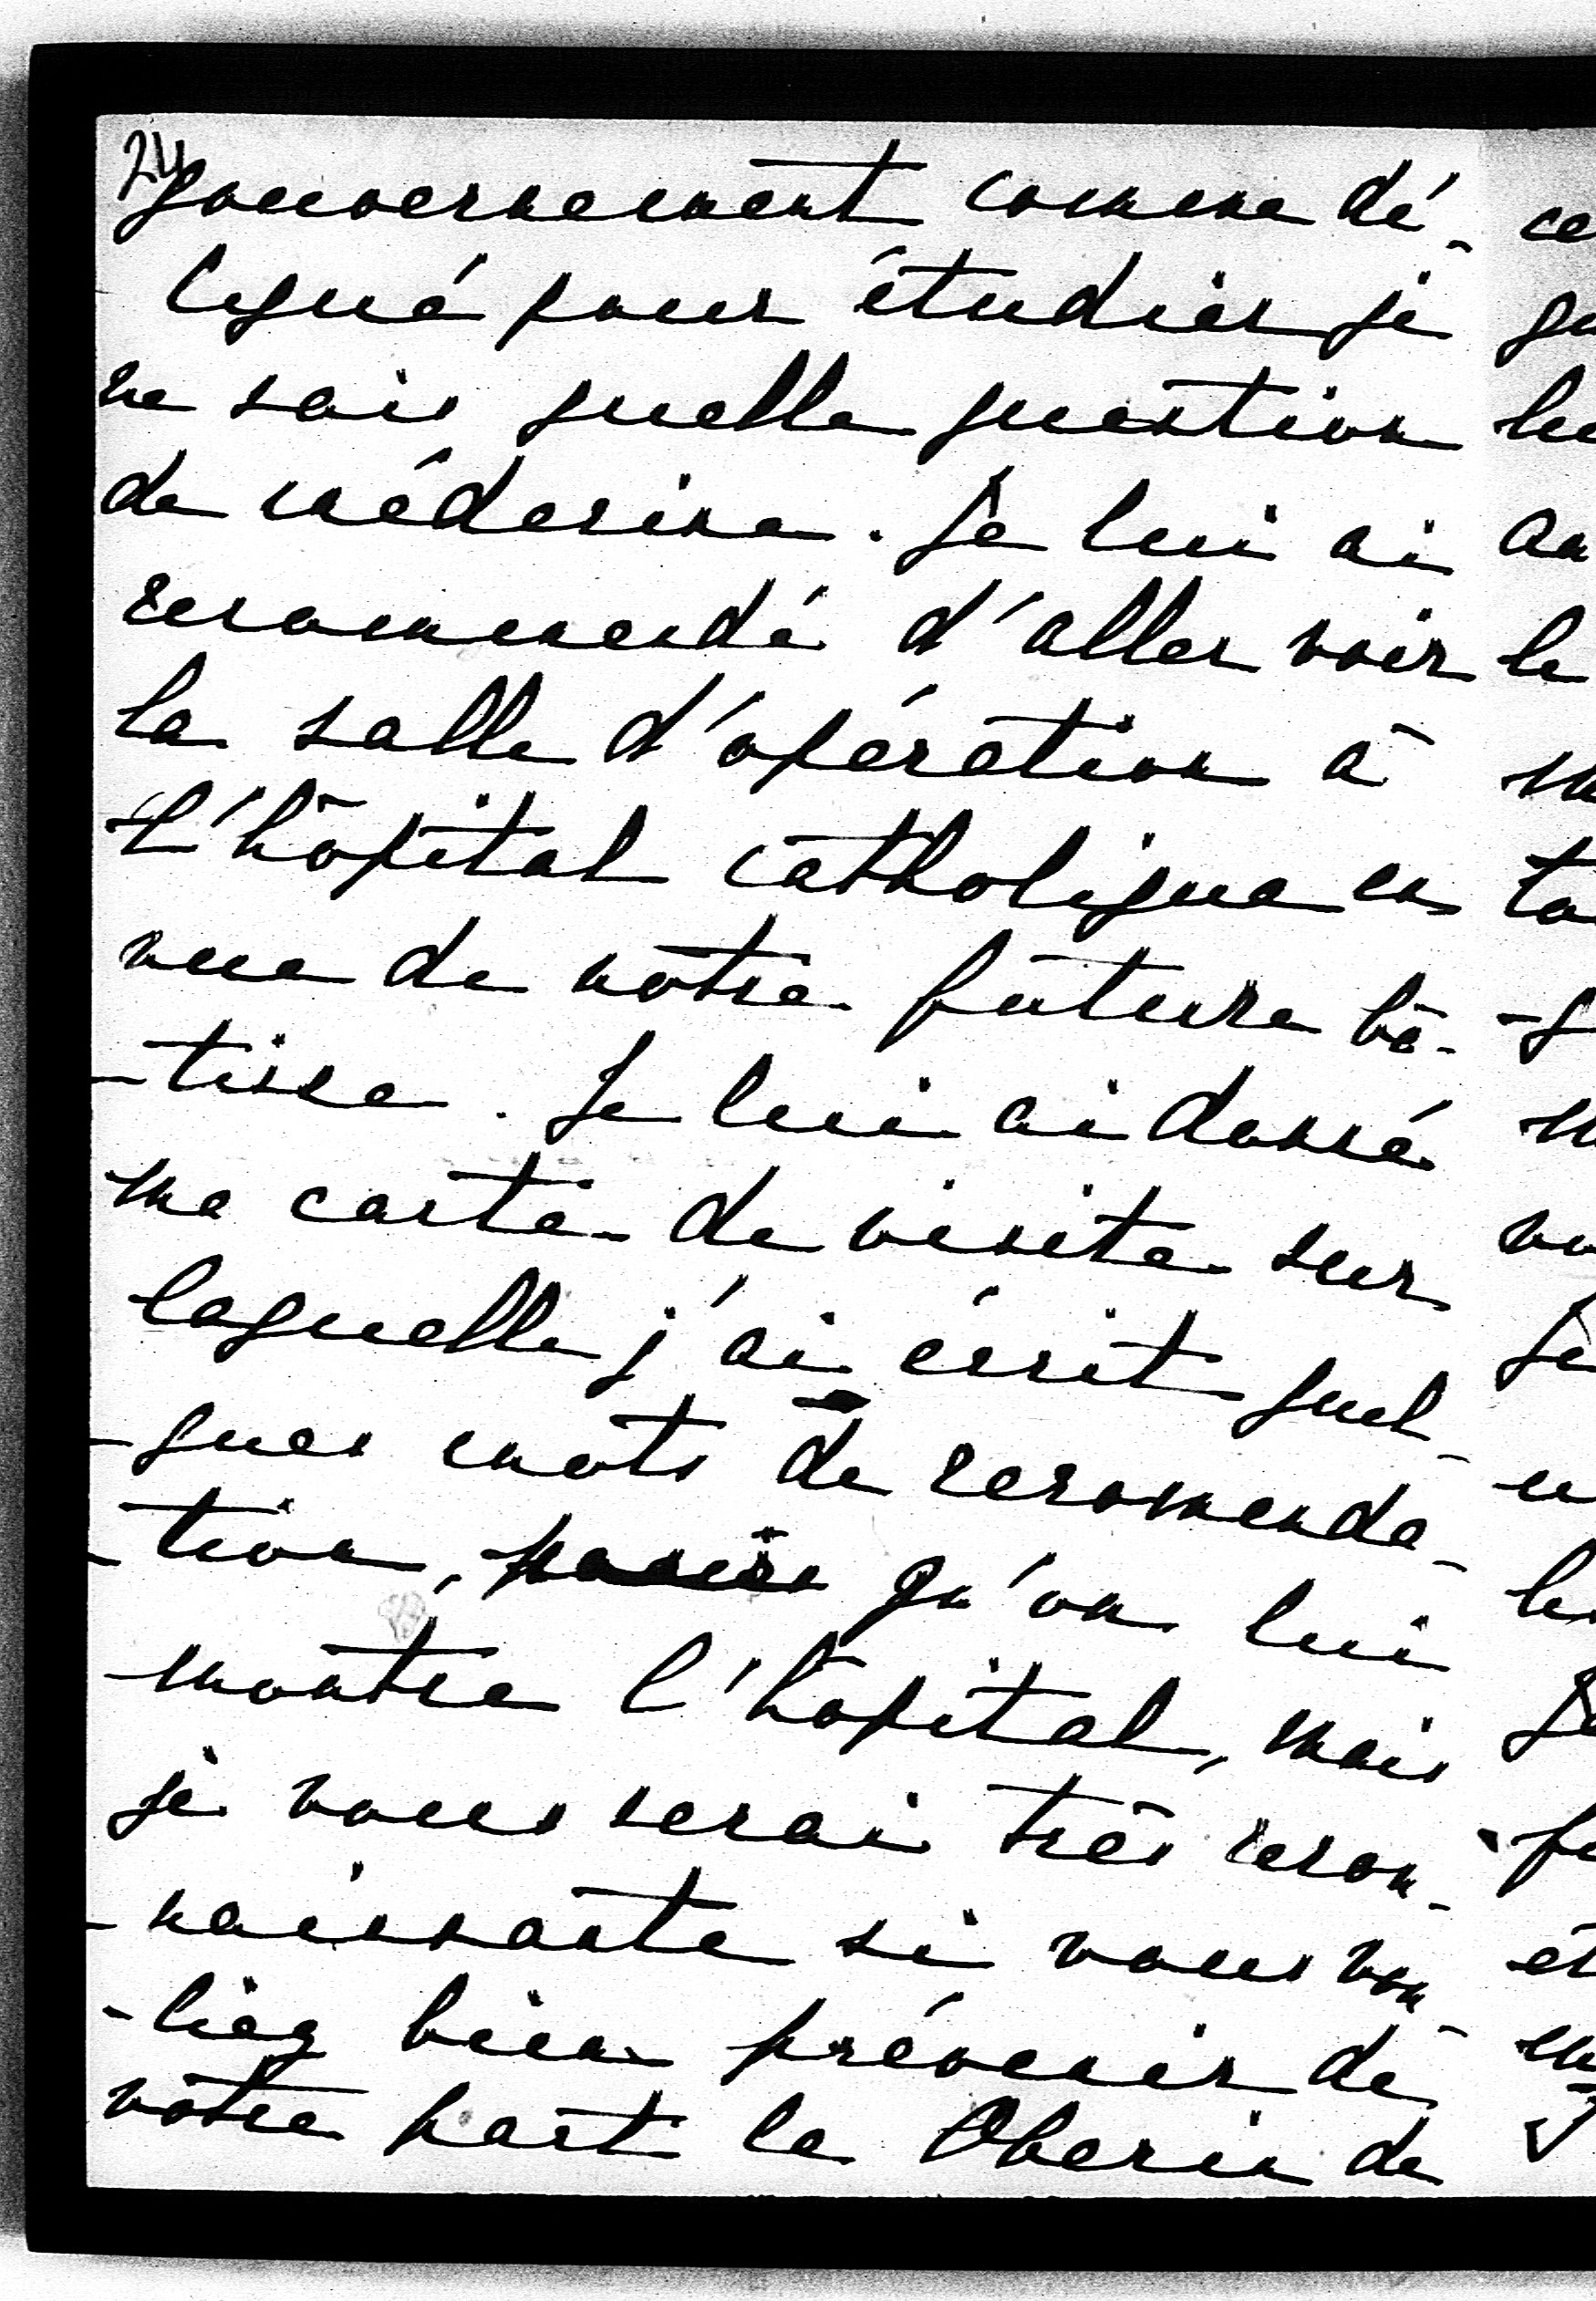 24
gouvernement comme dé-
légué pour étudier je
ne sais quelle question
de médecine. Je lui ai
recommendé d'aller voir
la salle d'opération à
l'hôpital catholique en
vue de notre future bâ-
-tisse. Je lui ai donné
ma carte de visite sur
laquelle j'ai écrit quel-
-ques mots de recomenda-
-tion, qu'on lui
montre l'hôpital, mais
je vous serai très recon-
-naissante si vous vou-
-liez bien prévenir de
votre part la Oberin de